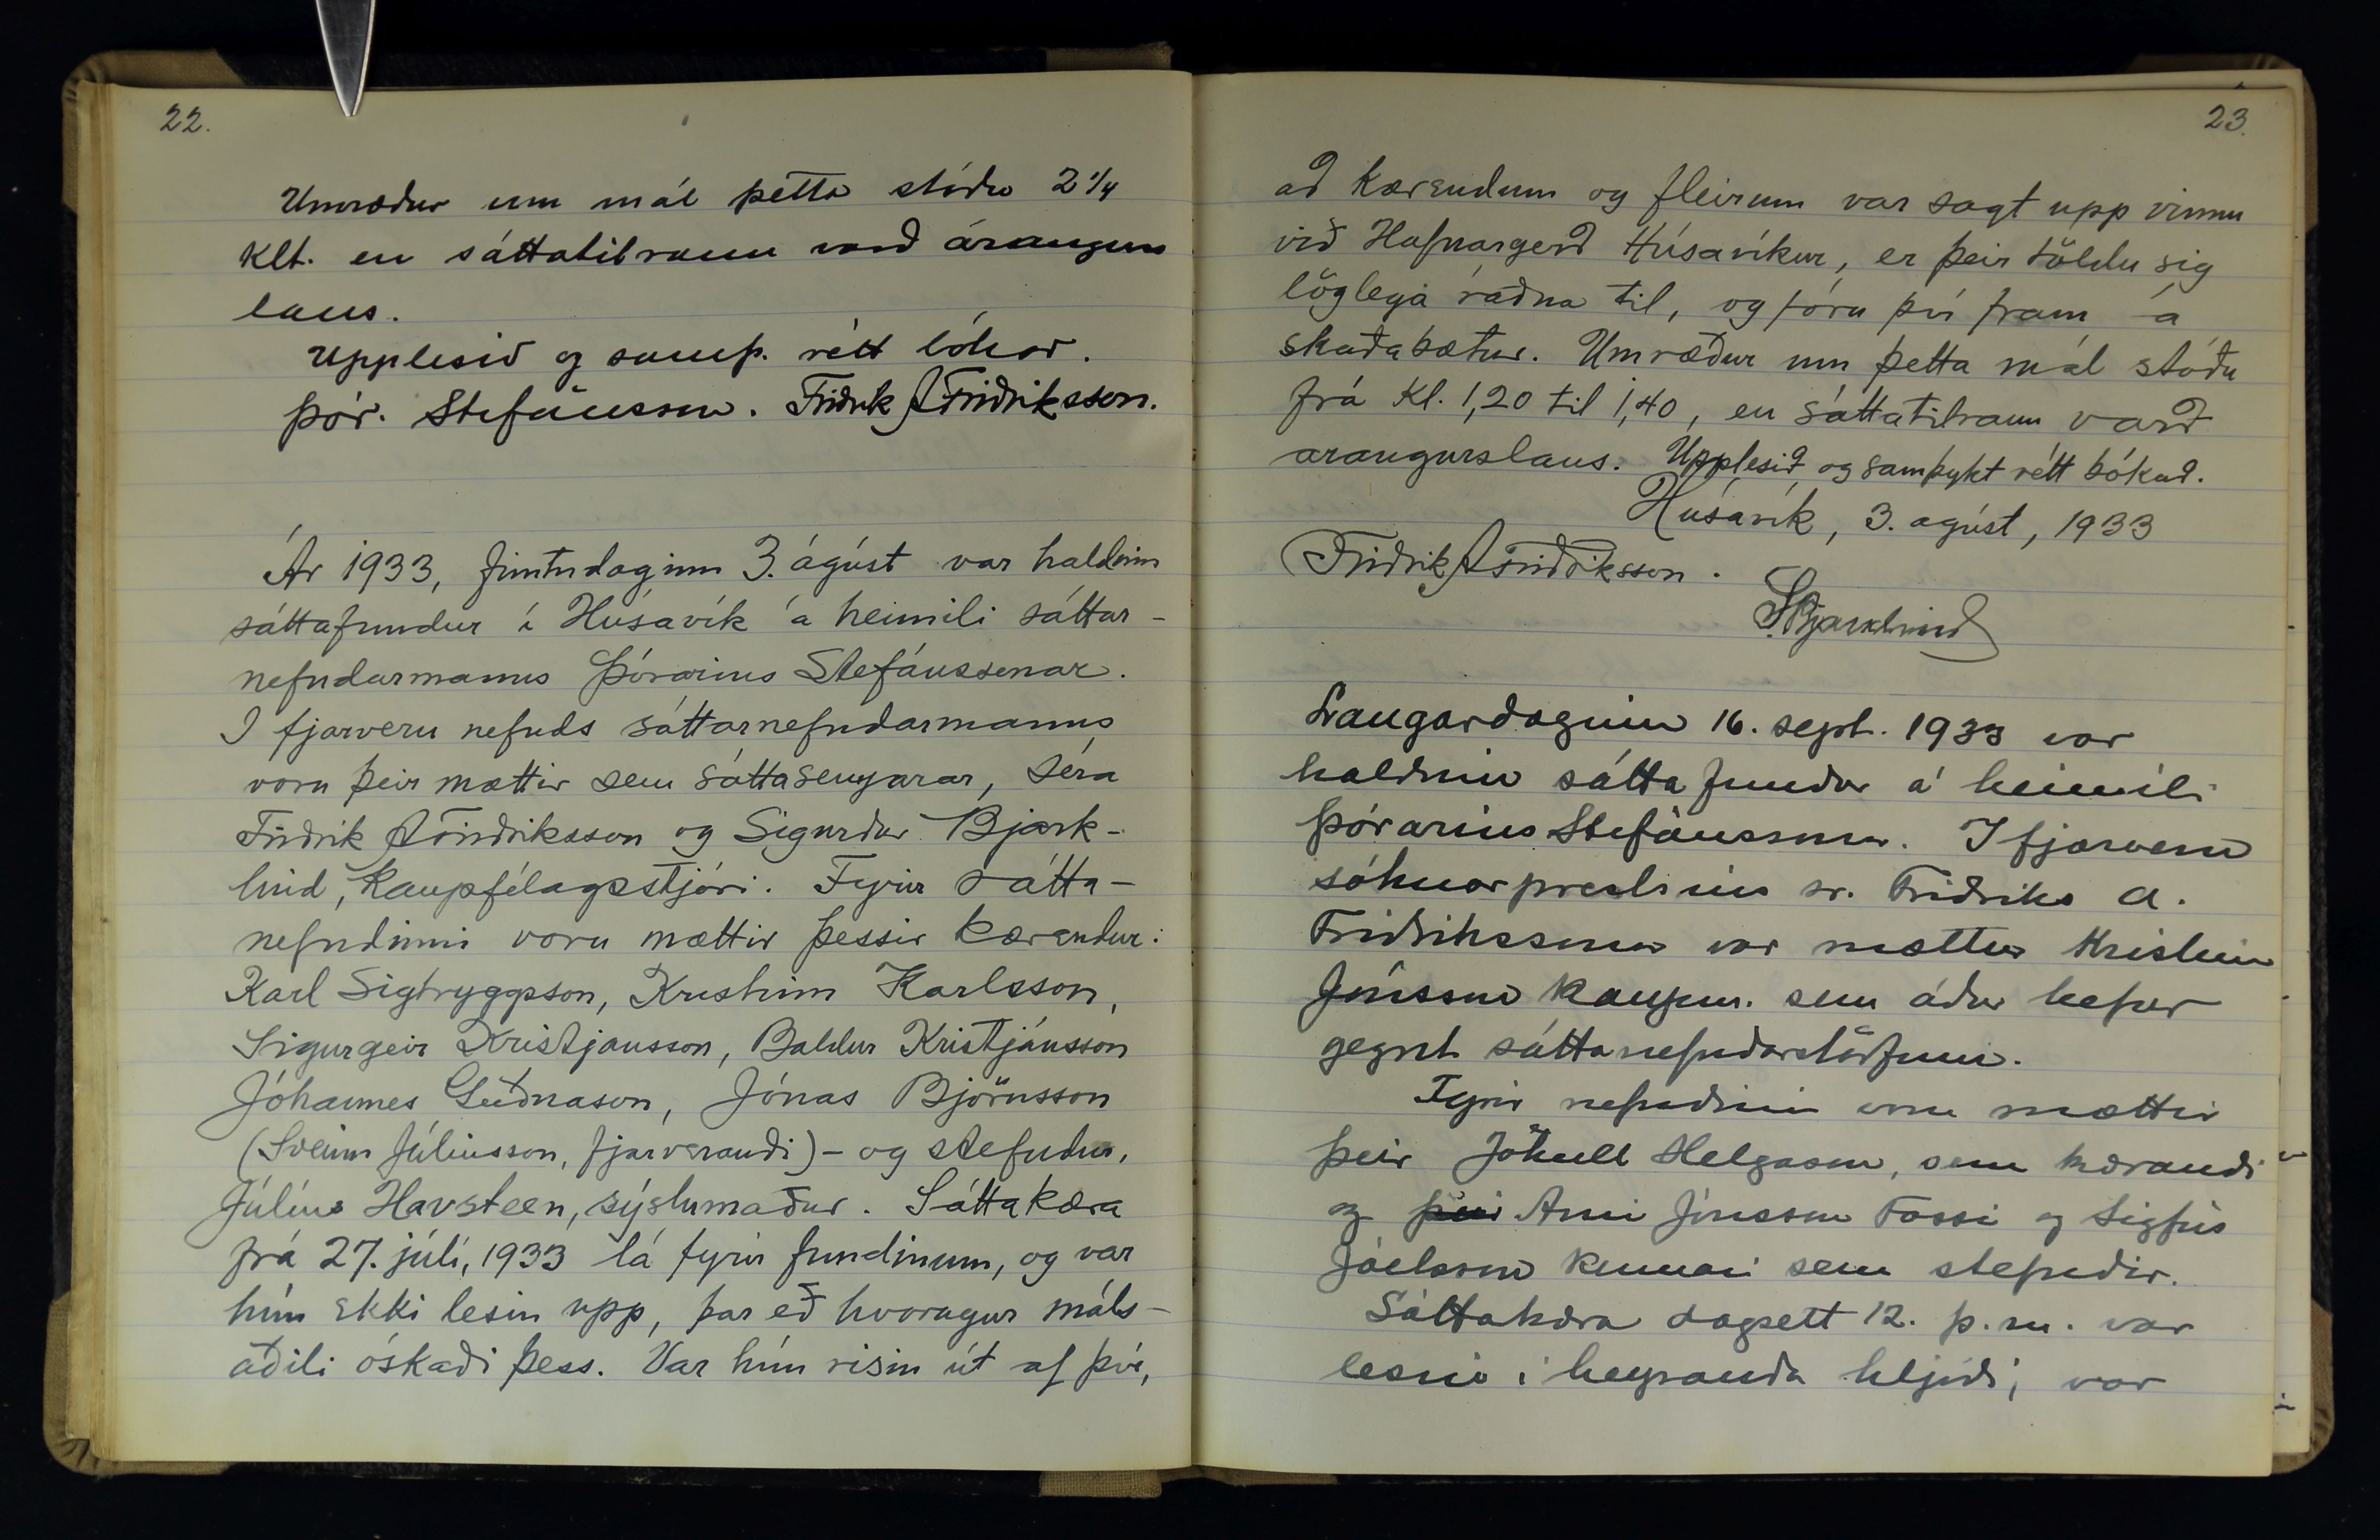 22.
Umræður um mál þetta stóðu 2 1/4
klt. en sáttatilraun varð árangurs
laus.
Upplesið og samþ. rétt bókað.
Þór. Stefánsson. Friðrik A Friðriksson.
Ár 1933, fimtudaginn 3. ágúst var haldinn
sáttafundur í Húsavík á heimili sáttar-
nefndarmanns Þórarins Stefánssonar.
Í fjarveru nefnds sáttarnefndarmanns
voru þeir mættir sem sáttasemjarar, séra
Friðrik A Friðriksson og Sigurður Bjark-
lind, Kaupfélagsstjóri. Fyrir sátta-
nefndinni voru mættir þessir kærendur:
Karl Sigtryggsson, Kristinn Karlsson,
Sigurgeir Kristjánsson, Baldur Kristjánsson
Jóhannes Guðnason, Jónas Björnsson
(Sveinn Júlíusson, fjarverandi) - og stefndur,
Júlíus Havsteen, sýslumaður. Sáttakæra
frá 27. júlí, 1933 lá fyrir fundinum, og var
hún ekki lesin upp, þar eð hvorugur máls-
aðili óskaði þess. Var hún risin út af því,
23.
að kærendum og fleirum var sagt upp vinnu
við Hafnargerð Húsavíkur, er þeir töldu sig
löglega ráðna til, og fóru því fram á
skaðabætur. Umræður um þetta mál stóðu
frá Kl. 1,20 til 1,40, en sáttatilraun varð
arangurslaus. Upplesið og samþykt rétt bókað.
Húsavík, 3. agúst, 1933
Friðrik A Friðriksson.
S Bjarklind
Laugardaginn 16. sept. 1933 var
haldinn sáttafundur á heimili
Þórarins Stefánssonar. I fjarveru
sóknarprestsins sr. Friðriks A.
Friðrikssonar var mættur Kristinn
Jónsson kaupm. sem áður hefur
gegnt sáttanefndarstörfum.
Fyrir nefndinni voru mættir
þeir Jökull Helgason, sem kærandi
og þeir Arni Jónsson Fossi og Sigfús
Jóelsson kennari sem stefndir.
Sáttakæra dagsett 12. þ.m. var
lesin í heyranda hljóði, var